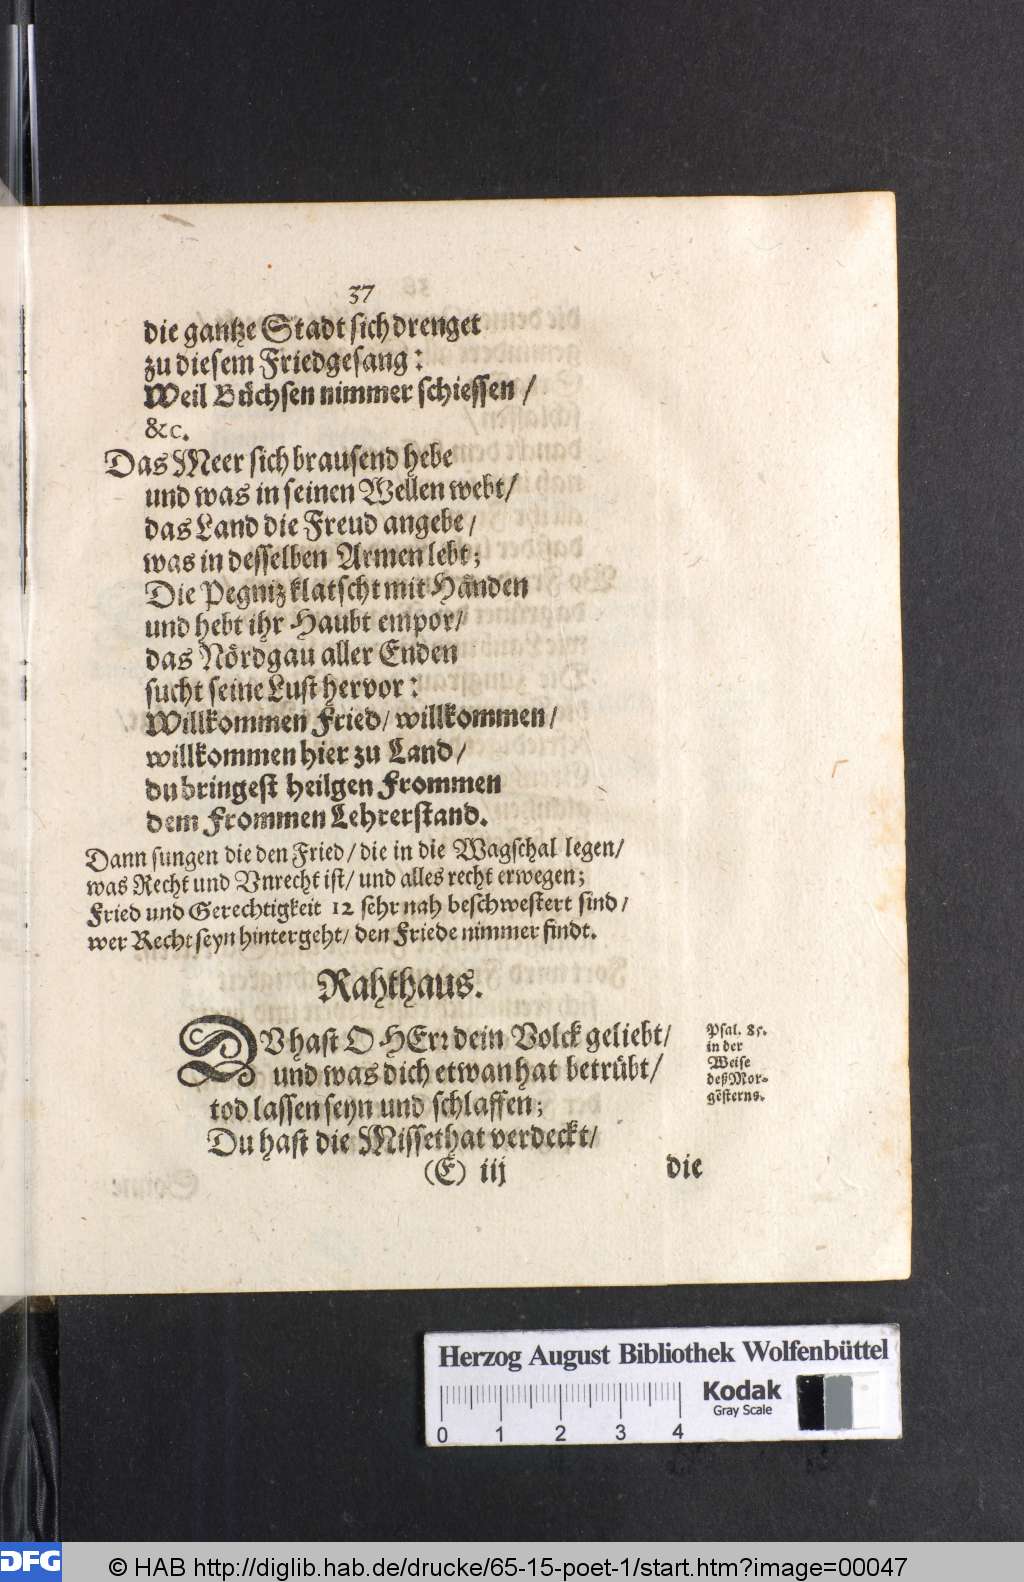 37
die gantze Stadt sich drenget
zu diesem Friedgesang:
Weil Büchsen nimmer schiessen /
&c.
Das Meer sich brausend hebe
und was in seinen Wellen webt/
das Land die Freud angebe /
was in desselben Armen lebt;
Die Pegniz klatscht mit Händen
und hebt ihr Haubt empor/
das Nördgau aller Enden
sucht seine Lust hervor:
Willkommen Fried/ willkommen/
willkommen hier zu Land/
du bringest heilgen Frommen
dem Frommen Lehrerstand.
Dann sungen die den Fried/ die in die Wagschal legen/
was Recht und Vnrecht ist/ und alles recht erwegen;
Fried und Gerechtigkeit 12 sehr nah beschwestert sind/
wer Recht seyn hintergeht/ den Friede nimmer findt.
Rahthaus.
DV hast O HErr dein Volck geliebt/
und was dich etwan hat betrübt/
tod lassen seyn und schlaffen;
Du hast die Missethat verdeckt/
Psal. 85.
in der
Weise
deß Mor-
gēsterns.
(E) iij die
Herzog August Bibliothek Wolfenbüttel
Kodak
Gray Scale
0 1 2 3 4
DFG © HAB http://diglib.hab.de/drucke/65-15-poet-1/start.htm?image=00047